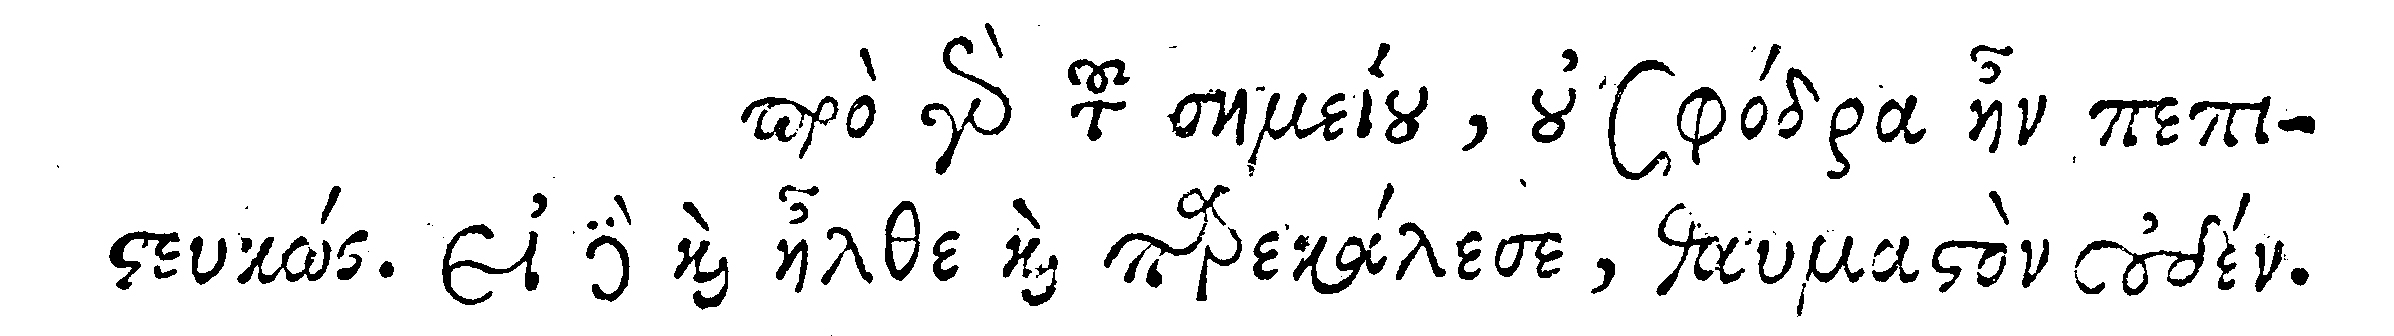 πρὸ γὰρ τοῦ σημείου, οὐ σφόδρα ἦν πεπι-
στευκώς. Εἰ δὲ καὶ ἦλθε καὶ παρεκάλεσε, θαυμαστὸν οὐδέν.